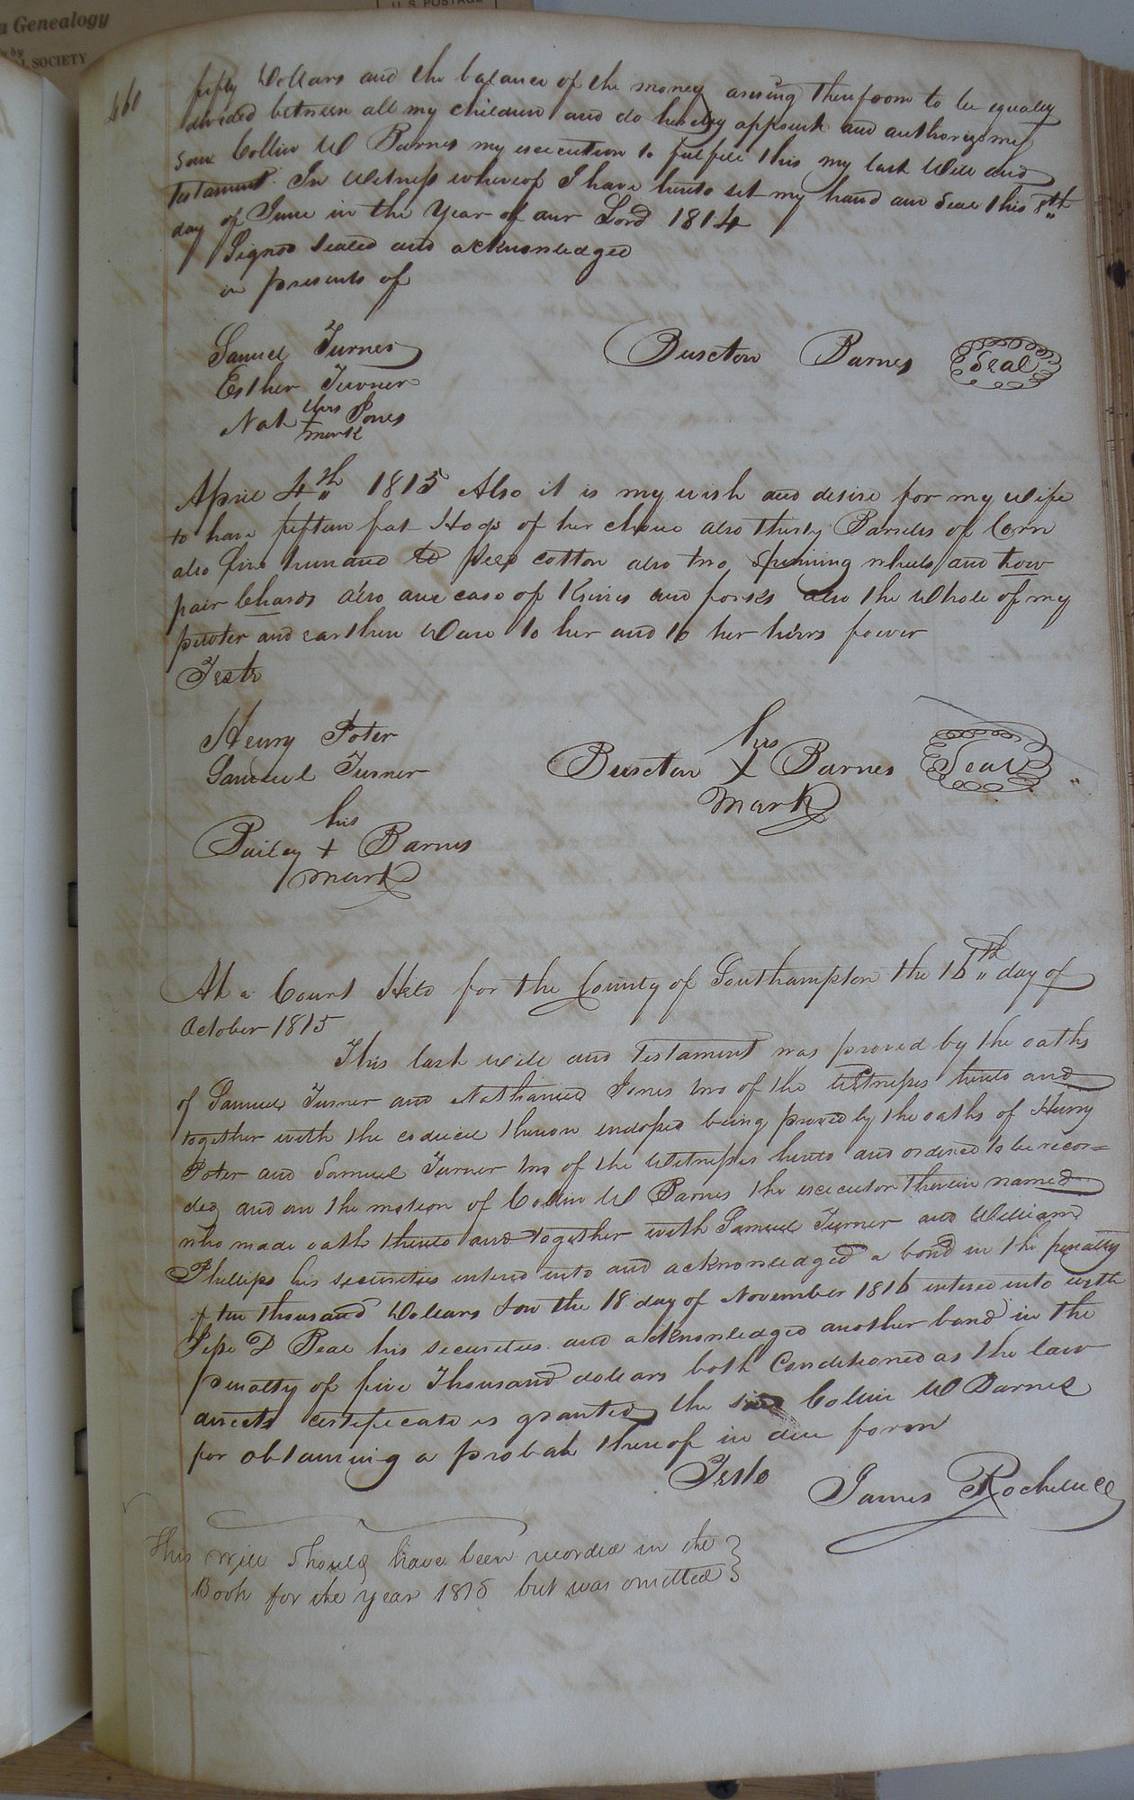 a Genealogy
U.S. POSTAGE
by
SOCIETY
460
fifty Dollars and the balance of the money arising therefrom to be equally
divided between all my children and do hereby appoint and authorize my
son Collin W Barnes my execution to fulfill this my last Will and
Testament. In Witness whereof I have hereto set my hand and Seal this 8th
day of June in the Year of our Lord 1814
Signed Sealed and acknowledged
in presents of
Samuel Turner
Burcton Barnes Seal
Esther Turner
Nath his Jones
mark
April 4th 1815 Also it is my wish and desire for my wife
to have fifteen fat Hogs of her choice also thirty Barrels of Corn
also five hundred seed cotton also two spinning wheels and tow
pair Chards also one case of Knives and forks also the whole of my
pewter and earthen Ware to her and to her heirs forever
Teste
Henry Poter
Samuel Turner
his
Burcton X Barnes Seal
mark
his
Bailey + Barnes
mark
At a Court Held for the County of Southampton the 16th day of
October 1815
This last will and Testament was proved by the oaths
of Samuel Turner and Nathaniel Jones two of the Witnesses hereto and
together with the codicil thereon endorsed being proved by the oaths of Henry
Poter and Samuel Turner two of the Witnesses hereto and ordered to be recor=
ded and on the motion of Collin W Barnes the executor therein named
who made oath thereto and together with Samuel Turner and William
Phillips his securities entered into and acknowledged a bond in the penalty
of ten thousand Dollars & on the 18 day of November 1816 entered into with
Jesse D Beal his securities and acknowledged another bond in the
penalty of five Thousand dollars both Conditioned as the law
directs certificate is granted the said Collin W Barnes
for obtaining a probat thereof in due form
Teste James Rochelle CC
This will should have been recorded in the
Book for the year 1815 but was omitted